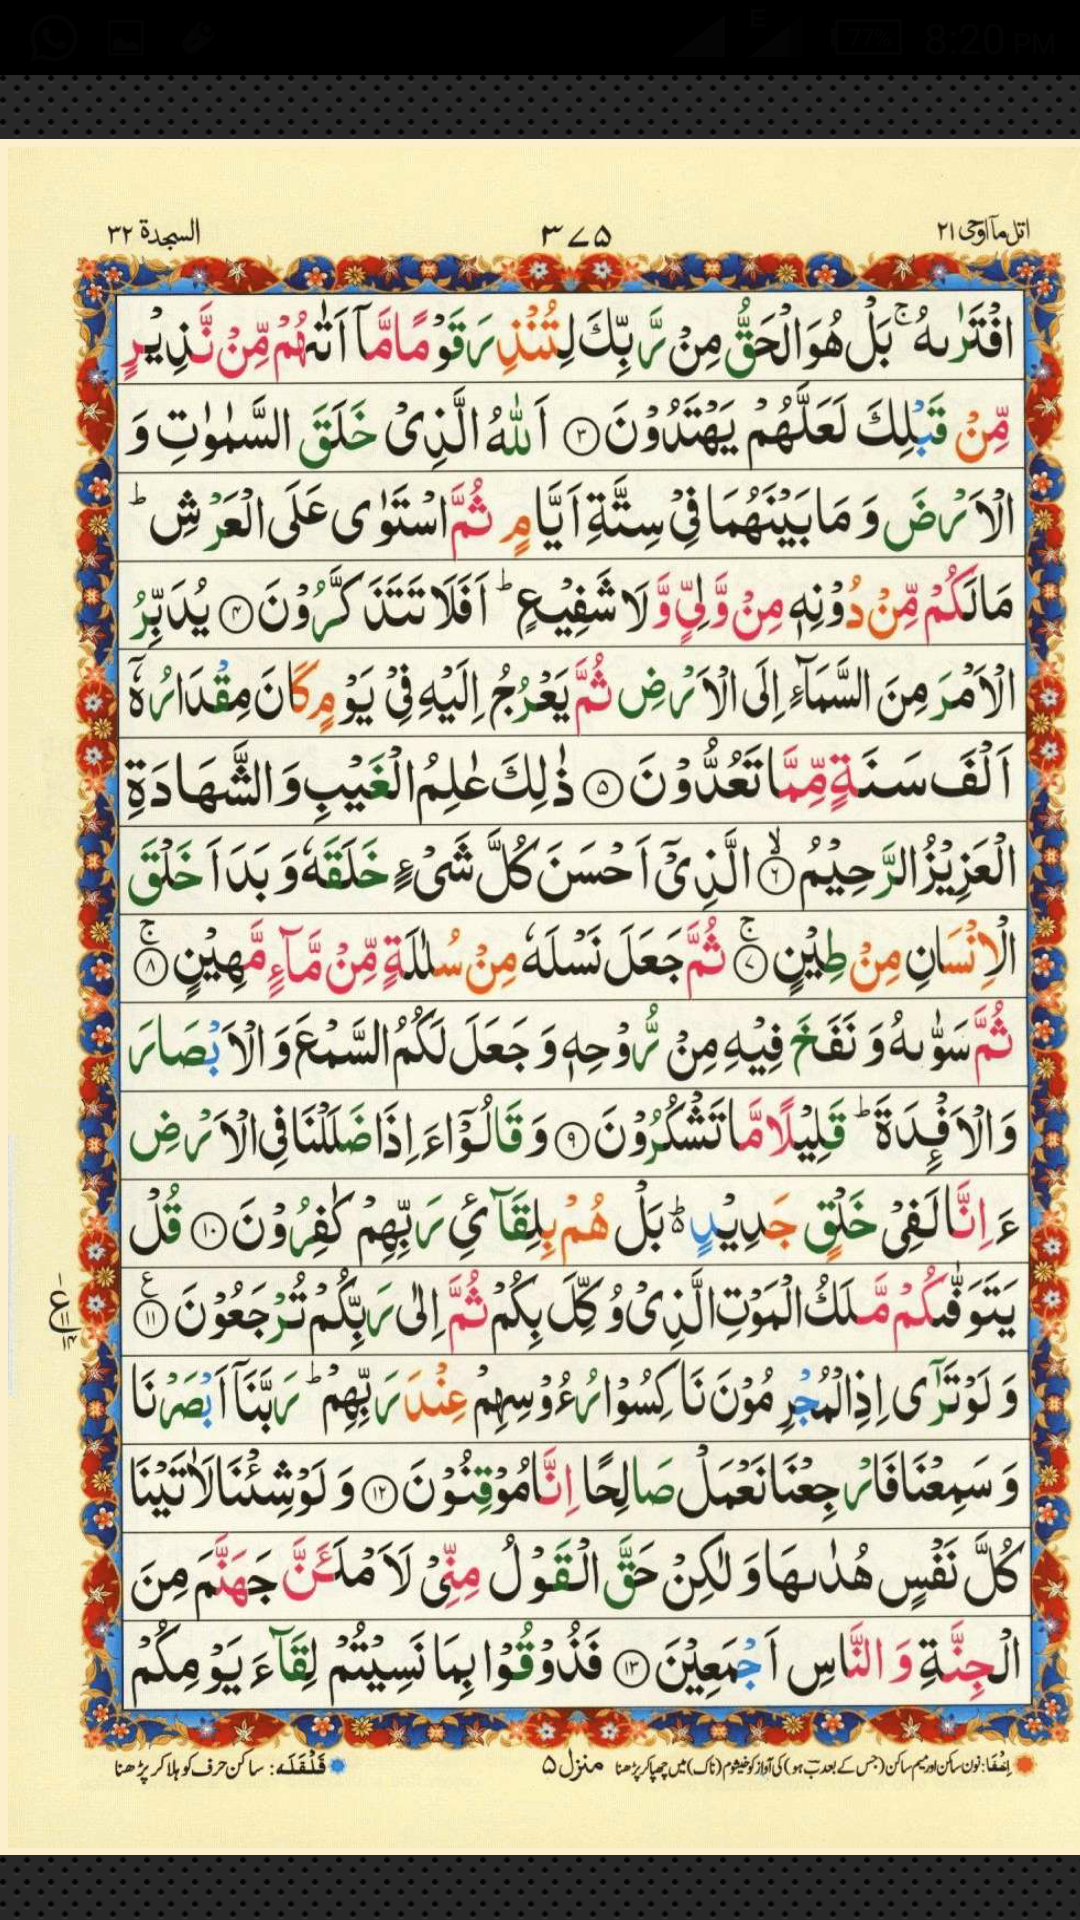 8:20 PM
77%
E
اتل مآاوحی ۲۱
۳۷۵
السجدة ۳۲
افْتَرٰىهُ ۚ بَلْ هُوَ الْحَقُّ مِنْ رَّبِّكَ لِتُنْذِرَ قَوْمًا مَّاۤ اَتٰىهُمْ مِّنْ نَّذِيْرٍ
مِّنْ قَبْلِكَ لَعَلَّهُمْ يَهْتَدُوْنَ ۝۳ اَللّٰهُ الَّذِىْ خَلَقَ السَّمٰوٰتِ وَ
الْاَرْضَ وَ مَا بَيْنَهُمَا فِىْ سِتَّةِ اَيَّامٍ ثُمَّ اسْتَوٰى عَلَى الْعَرْشِ ؕ
مَا لَكُمْ مِّنْ دُوْنِهٖ مِنْ وَّلِىٍّ وَّلَا شَفِيْعٍ ؕ اَفَلَا تَتَذَكَّرُوْنَ ۝۴ يُدَبِّرُ
الْاَمْرَ مِنَ السَّمَآءِ اِلَى الْاَرْضِ ثُمَّ يَعْرُجُ اِلَيْهِ فِىْ يَوْمٍ كَانَ مِقْدَارُهٗۤ
اَلْفَ سَنَةٍ مِّمَّا تَعُدُّوْنَ ۝۵ ذٰلِكَ عٰلِمُ الْغَيْبِ وَ الشَّهَادَةِ
الْعَزِيْزُ الرَّحِيْمُ ۝۶ۙ الَّذِىْۤ اَحْسَنَ كُلَّ شَىْءٍ خَلَقَهٗ وَ بَدَاَ خَلْقَ
الْاِنْسَانِ مِنْ طِيْنٍ ۝۷ۚ ثُمَّ جَعَلَ نَسْلَهٗ مِنْ سُلٰلَةٍ مِّنْ مَّآءٍ مَّهِيْنٍ ۝۸ۚ
ثُمَّ سَوّٰىهُ وَ نَفَخَ فِيْهِ مِنْ رُّوْحِهٖ وَ جَعَلَ لَكُمُ السَّمْعَ وَ الْاَبْصَارَ
وَالْاَفْـِٕدَةَ ؕ قَلِيْلًا مَّا تَشْكُرُوْنَ ۝۹ وَ قَالُوْۤا ءَاِذَا ضَلَلْنَا فِى الْاَرْضِ
ءَاِنَّا لَفِىْ خَلْقٍ جَدِيْدٍ ؕ۬ بَلْ هُمْ بِلِقَآئِ رَبِّهِمْ كٰفِرُوْنَ ۝۱۰ قُلْ
يَتَوَفّٰىكُمْ مَّلَكُ الْمَوْتِ الَّذِىْ وُكِّلَ بِكُمْ ثُمَّ اِلٰى رَبِّكُمْ تُرْجَعُوْنَ ۝۱۱ع
ع
۱۱
۱۴
وَ لَوْ تَرٰۤى اِذِ الْمُجْرِمُوْنَ نَاكِسُوْا رُءُوْسِهِمْ عِنْدَ رَبِّهِمْ ؕ رَبَّنَاۤ اَبْصَرْنَا
وَ سَمِعْنَا فَارْجِعْنَا نَعْمَلْ صَالِحًا اِنَّا مُوْقِنُوْنَ ۝۱۲ وَ لَوْ شِئْنَا لَاٰتَيْنَا
كُلَّ نَفْسٍ هُدٰىهَا وَ لٰكِنْ حَقَّ الْقَوْلُ مِنِّىْ لَاَمْلَـَٔنَّ جَهَنَّمَ مِنَ
الْجِنَّةِ وَ النَّاسِ اَجْمَعِيْنَ ۝۱۳ فَذُوْقُوْا بِمَا نَسِيْتُمْ لِقَآءَ يَوْمِكُمْ
اِخْفَا: نون ساکن اور میم ساکن (جس کے بعد ب ہو) کی آواز کو خیشوم (ناک) میں چھپا کر پڑھنا
منزل ۵
قَلْقَلَه: ساکن حرف کو ہلا کر پڑھنا